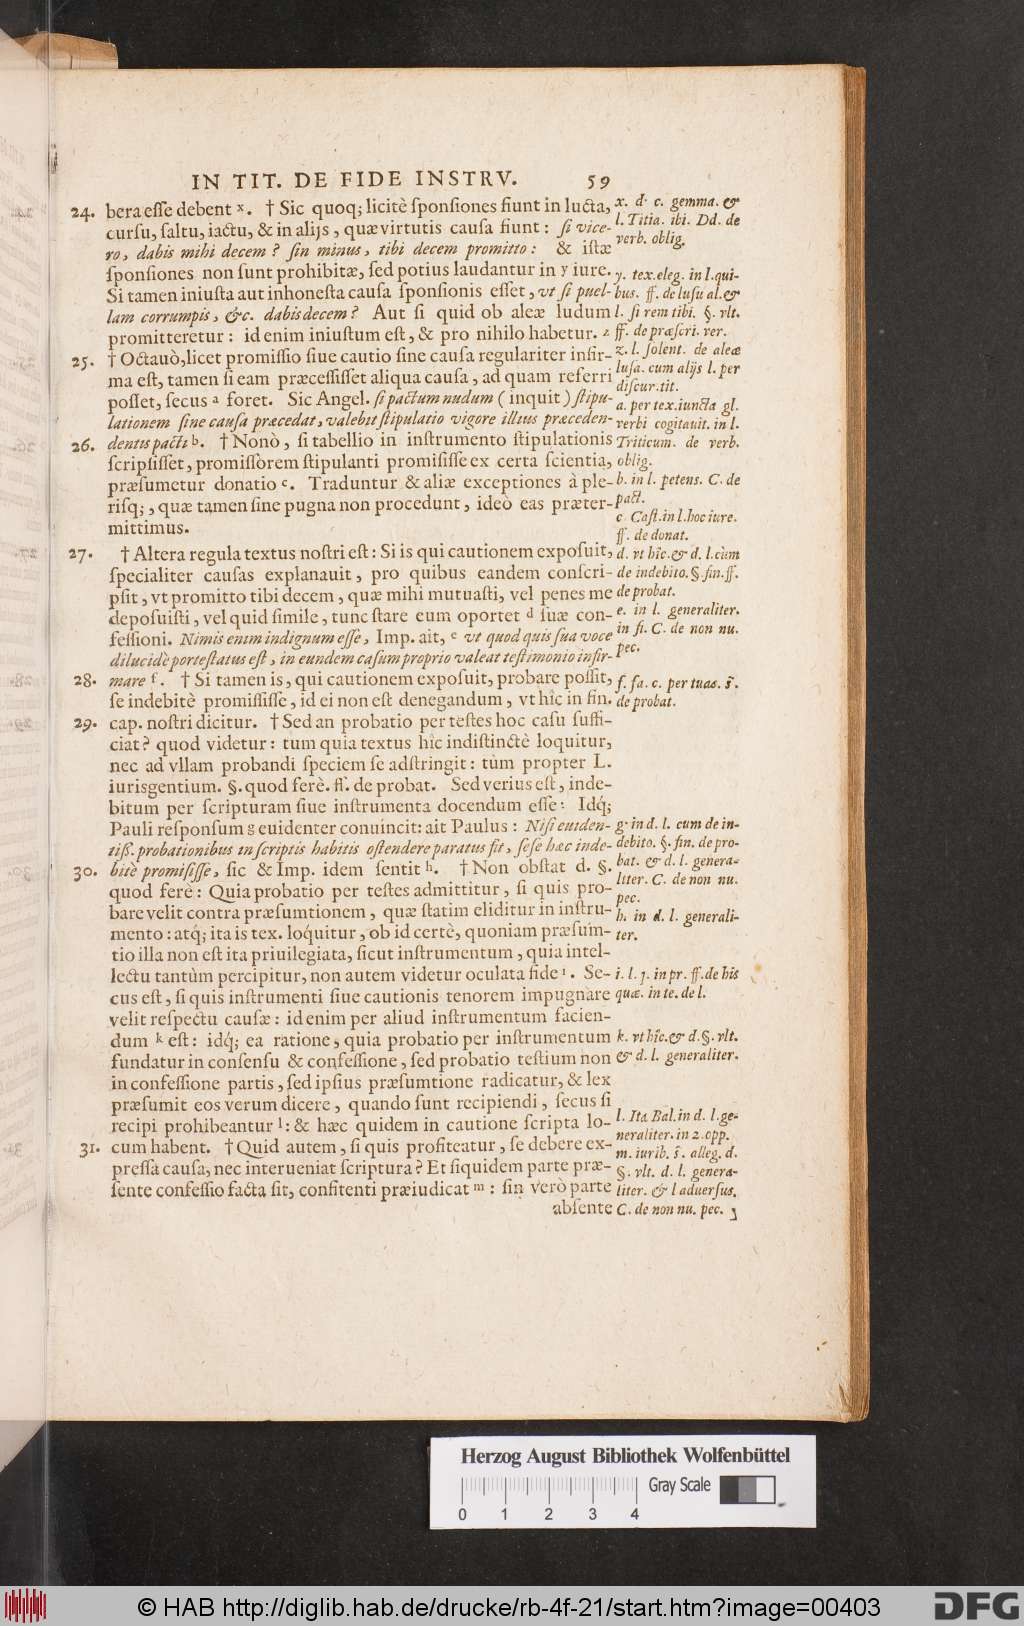 IN TIT. DE FIDE INSTRV. 59
24. bera eſſe debent ˣ. † Sic quoq; licitè ſponſiones fiunt in lucta,
curſu, ſaltu, iactu, & in alijs, quæ virtutis cauſa fiunt: ſi vice-
ro, dabis mihi decem? ſin minus, tibi decem promitto: & iſtæ
ſponſiones non ſunt prohibitæ, ſed potius laudantur in ʸ iure.
Si tamen iniuſta aut inhoneſta cauſa ſponſionis eſſet, vt ſi puel-
lam corrumpis, &c. dabis decem? Aut ſi quid ob aleæ ludum
promitteretur: id enim iniuſtum eſt, & pro nihilo habetur. ᶻ
25. † Octauò, licet promiſſio ſiue cautio ſine cauſa regulariter infir-
ma eſt, tamen ſi eam præceſſiſſet aliqua cauſa, ad quam referri
poſſet, ſecus ᵃ foret. Sic Angel. ſi pactum nudum (inquit) ſtipu-
lationem ſine cauſa præcedat, valebit ſtipulatio vigore illius præceden-
26. dentis pacti ᵇ. † Nonò, ſi tabellio in inſtrumento ſtipulationis
ſcripſiſſet, promiſſorem ſtipulanti promiſiſſe ex certa ſcientia,
præſumetur donatio ᶜ. Traduntur & aliæ exceptiones à ple-
riſq;, quæ tamen ſine pugna non procedunt, ideò eas præter-
mittimus.
27. † Altera regula textus noſtri eſt: Si is qui cautionem expoſuit,
ſpecialiter cauſas explanauit, pro quibus eandem conſcri-
pſit, vt promitto tibi decem, quæ mihi mutuaſti, vel penes me
depoſuiſti, vel quid ſimile, tunc ſtare eum oportet ᵈ ſuæ con-
feſſioni. Nimis enim indignum eſſe, Imp. ait, ᵉ vt quod quis ſua voce
dilucidè porteſtatus eſt, in eundem caſum proprio valeat teſtimonio infir-
28. mare ᶠ. † Si tamen is, qui cautionem expoſuit, probare poſſit,
ſe indebitè promiſiſſe, id ei non eſt denegandum, vt hîc in fin.
29. cap. noſtri dicitur. † Sed an probatio per teſtes hoc caſu ſuffi-
ciat? quod videtur: tum quia textus hîc indiſtinctè loquitur,
nec ad vllam probandi ſpeciem ſe adſtringit: tùm propter L.
iurisgentium. §. quod ferè. ff. de probat. Sed verius eſt, inde-
bitum per ſcripturam ſiue inſtrumenta docendum eſſe: Idq́;
Pauli reſponſum ᵍ euidenter conuincit: ait Paulus: Niſi euiden-
tiß. probationibus in ſcriptis habitis oſtendere paratus ſit, ſeſe hæc inde-
30. bitè promiſiſſe, ſic & Imp. idem ſentit ʰ. † Non obſtat d. §.
quod ferè: Quia probatio per teſtes admittitur, ſi quis pro-
bare velit contra præſumtionem, quæ ſtatim eliditur in inſtru-
mento: atq́; ita is tex. loquitur, ob id certè, quoniam præſum-
tio illa non eſt ita priuilegiata, ſicut inſtrumentum, quia intel-
lectu tantùm percipitur, non autem videtur oculata fide ⁱ. Se-
cus eſt, ſi quis inſtrumenti ſiue cautionis tenorem impugnare
velit reſpectu cauſæ: id enim per aliud inſtrumentum facien-
dum ᵏ eſt: idq́; ea ratione, quia probatio per inſtrumentum
fundatur in conſenſu & confeſſione, ſed probatio teſtium non
in confeſſione partis, ſed ipſius præſumtione radicatur, & lex
præſumit eos verum dicere, quando ſunt recipiendi, ſecus ſi
recipi prohibeantur ˡ: & hæc quidem in cautione ſcripta lo-
31. cum habent. † Quid autem, ſi quis profiteatur, ſe debere ex-
preſſa cauſa, nec interueniat ſcriptura? Et ſiquidem parte præ-
ſente confeſſio facta ſit, confitenti præiudicat ᵐ: ſin verò parte
abſente
x. d. c. gemma. &
l. Titia. ibi. Dd. de
verb. oblig.
y. tex. eleg. in l. qui-
bus. ff. de luſu al. &
l. ſi rem tibi. §. vlt.
ff. de præſcri. ver.
z. l. ſolent. de aleæ
luſu. cum alijs l. per
diſcur. tit.
a. per tex. iuncta gl.
verbi cogitauit. in l.
Triticum. de verb.
oblig.
b. in l. petens. C. de
pact.
c Caſt. in l. hoc iure.
ff. de donat.
d. vt hîc. & d. l. cùm
de indebito. §. fin. ff.
de probat.
e. in l. generaliter.
in fi. C. de non nu.
pec.
f. fa. c. per tuas. s̃.
de probat.
g. in d. l. cum de in-
debito. §. fin. de pro-
bat. & d. l. genera-
liter. C. de non nu.
pec.
h. in d. l. generali-
ter.
i. l. 1. in pr. ff. de his
quæ. in te. de l.
k. vt hîc. & d. §. vlt.
& d. l. generaliter.
l. Ita Bal. in d. l. ge-
neraliter. in 2. opp.
m. iurib. s̃. alleg. d.
§. vlt. d. l. genera-
liter. & l aduerſus.
C. de non nu. pec.
Herzog August Bibliothek Wolfenbüttel
Gray Scale
0 1 2 3 4
© HAB http://diglib.hab.de/drucke/rb-4f-21/start.htm?image=00403
DFG